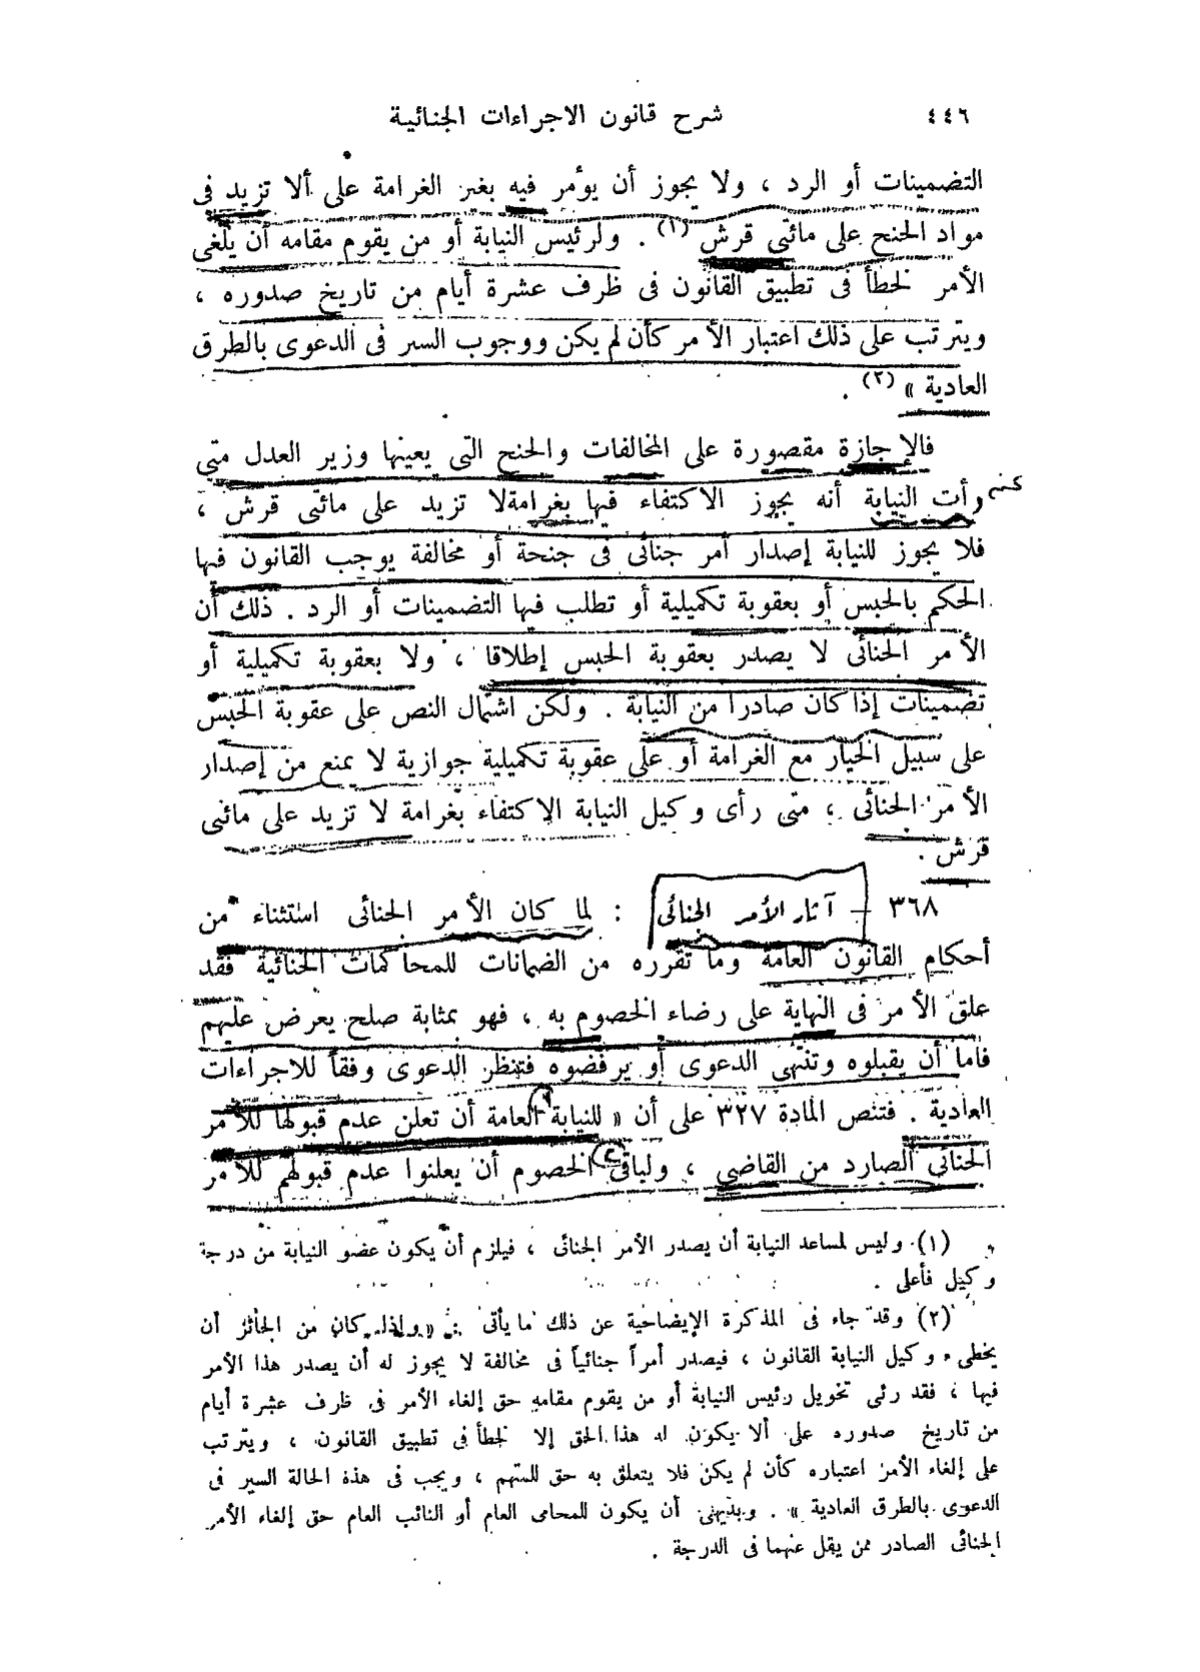 ٤٤٦ شرح قانون الاجراءات الجنائية
التضمينات أو الرد ، ولا يجوز أن يؤمر فيه بغير الغرامة على ألا تزيد فى
مواد الجنح على مائتى قرش (١) . ولرئيس النيابة أو من يقوم مقامه أن يلغى
الأمر لخطأ فى تطبيق القانون فى ظرف عشرة أيام من تاريخ صدوره ،
ويترتب على ذلك اعتبار الأمر كأن لم يكن ووجوب السير فى الدعوى بالطرق
العادية » (٢) .
فالإجازة مقصورة على المخالفات والجنح التى يعينها وزير العدل متى
رأت النيابة أنه يجوز الاكتفاء فيها بغرامة لا تزيد على مائتى قرش ،
فلا يجوز للنيابة إصدار أمر جنائى فى جنحة أو مخالفة يوجب القانون فيها
الحكم بالحبس أو بعقوبة تكميلية أو تطلب فيها التضمينات أو الرد . ذلك أن
الأمر الجنائى لا يصدر بعقوبة الحبس إطلاقا ، ولا بعقوبة تكميلية أو
تضمينات إذا كان صادرا من النيابة . ولكن اشتمال النص على عقوبة الحبس
على سبيل الخيار مع الغرامة أو على عقوبة تكميلية جوازية لا يمنع من إصدار
الأمر الجنائى ، متى رأى وكيل النيابة الاكتفاء بغرامة لا تزيد على مائتى
قرش .
٣٦٨ – آثار الأمر الجنائى : لما كان الأمر الجنائى استثناء من
أحكام القانون العامة وما تقرره من الضمانات للمحاكمات الجنائية فقد
علق الأمر فى النهاية على رضاء الخصوم به ، فهو بمثابة صلح يعرض عليهم
فاما أن يقبلوه وتنتهى الدعوى أو يرفضوه فتنظر الدعوى وفقاً للاجراءات
العادية . فتنص المادة ٣٢٧ على أن « للنيابة العامة أن تعلن عدم قبولها للأمر
الجنائى الصادر من القاضى ، ولباقى الخصوم أن يعلنوا عدم قبولهم للأمر
(١) وليس لمساعد النيابة أن يصدر الأمر الجنائى ، فيلزم أن يكون عضو النيابة من درجة
وكيل فأعلى .
(٢) وقد جاء فى المذكرة الإيضاحية عن ذلك ما يأتى : « وإذا كان من الجائز أن
يخطىء وكيل النيابة القانون ، فيصدر أمراً جنائياً فى مخالفة لا يجوز له أن يصدر هذا الأمر
فيها ، فقد رئى تخويل رئيس النيابة أو من يقوم مقامه حق إلغاء الأمر فى ظرف عشرة أيام
من تاريخ صدوره على ألا يكون له هذا الحق إلا لخطأ فى تطبيق القانون ، ويترتب
على إلغاء الأمر اعتباره كأن لم يكن فلا يتعلق به حق للمتهم ، ويجب فى هذه الحالة السير فى
الدعوى بالطرق العادية » . وبديهى أن يكون للمحامى العام أو النائب العام حق إلغاء الأمر
الجنائى الصادر ممن يقل عنهما فى الدرجة .